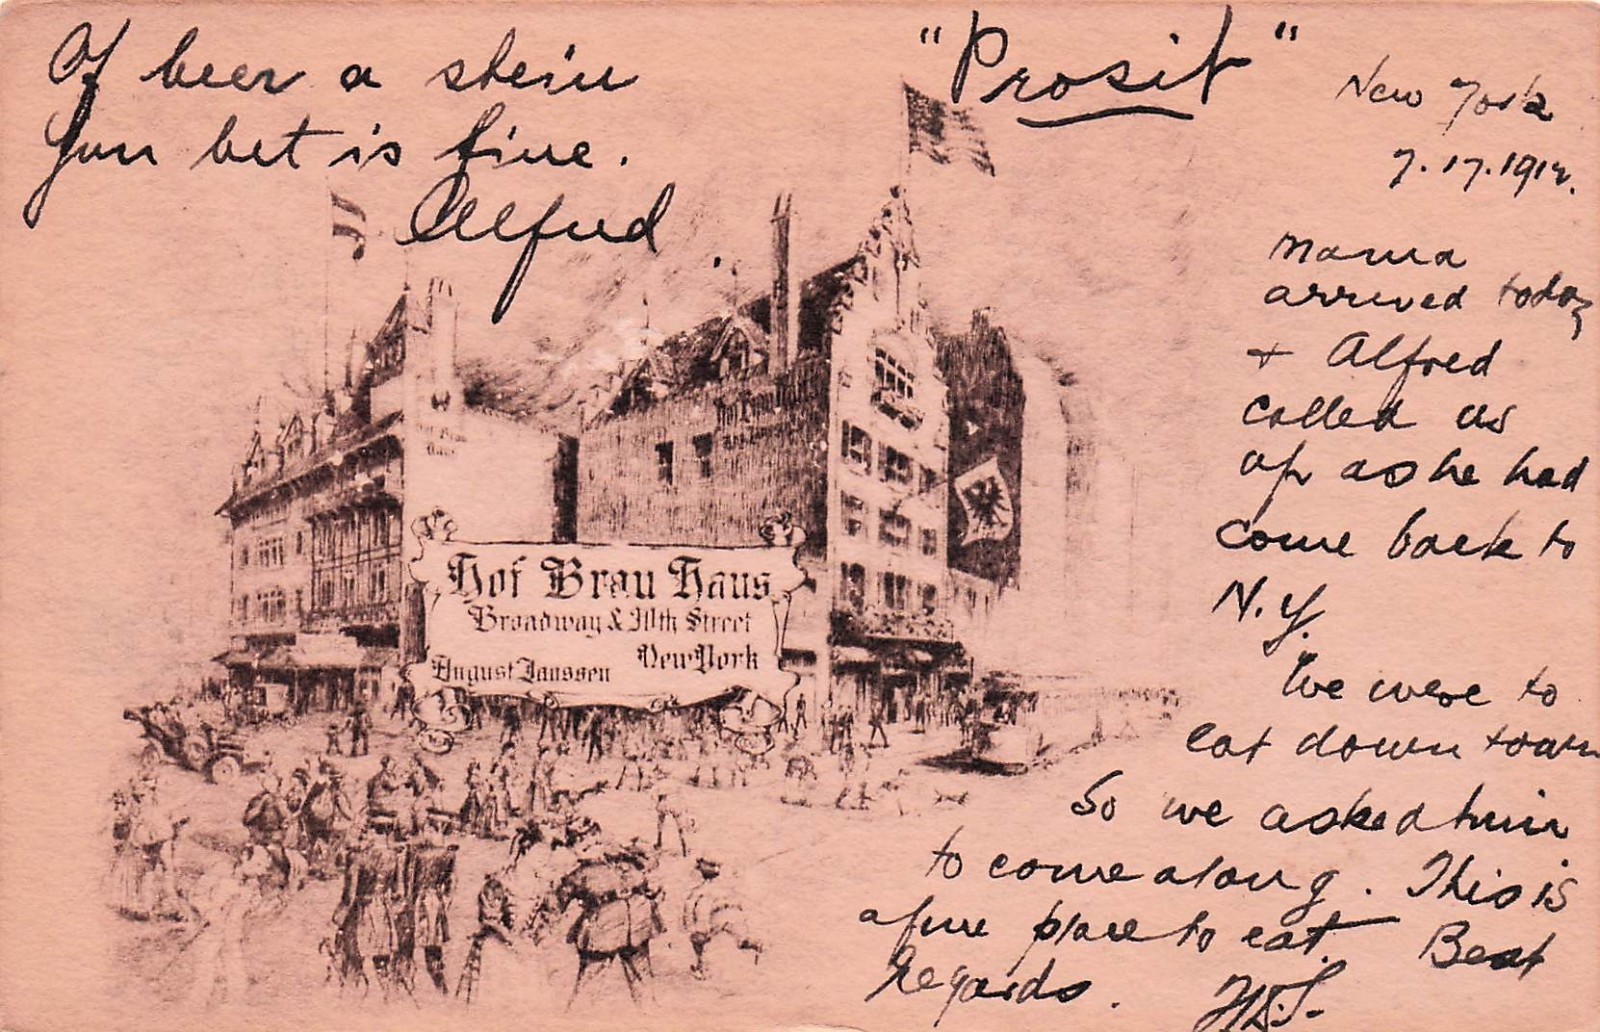 Of beer a stein
You bet is fine.
Alfred
"Prosit"
New York
7.17.1912.
Mama
arrived today
+ Alfred
called us
up as he had
come back to
N.Y.
We were to
eat down town
So we asked him
to come along. This is
a fine place to eat. Best
Regards.
Hof Brau Haus
Broadway & 30th Street
August Janssen New York